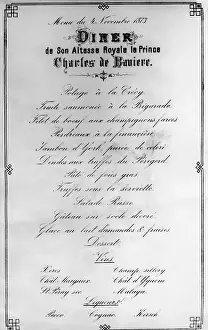 Menu du 4 Novembre 1873
DINER
de Son Altesse Royale le Prince
Charles de Baviere.
Potage à la Crécy
Truite saumonée à la Bigarade
Filet de boeuf aux champignons farcis
Perdreaux à la financière
Jambon d'York, purée de céleri
Dinde aux truffes du Périgord
Pâté de foies gras
Truffes sous la serviette
Salade Russe
Gâteau sur socle décoré
Glace au lait d'amandes & fraises
Dessert
Vins
Xéres Champ. sillery
Chat. Margaux Chat. d'Yquem
St. Peray sec Malaga
Liqueurs
Cognac Kirsch